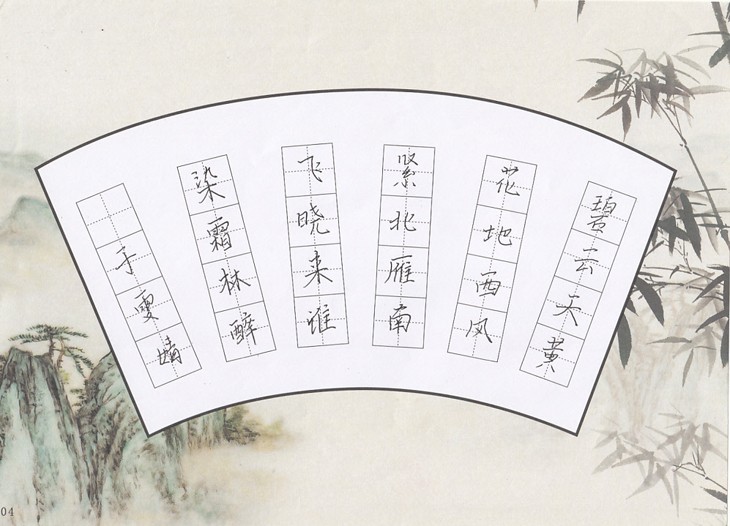 碧云天黄
花地西风
紧北雁南
飞晓来谁
染霜林醉
于雯婧
04